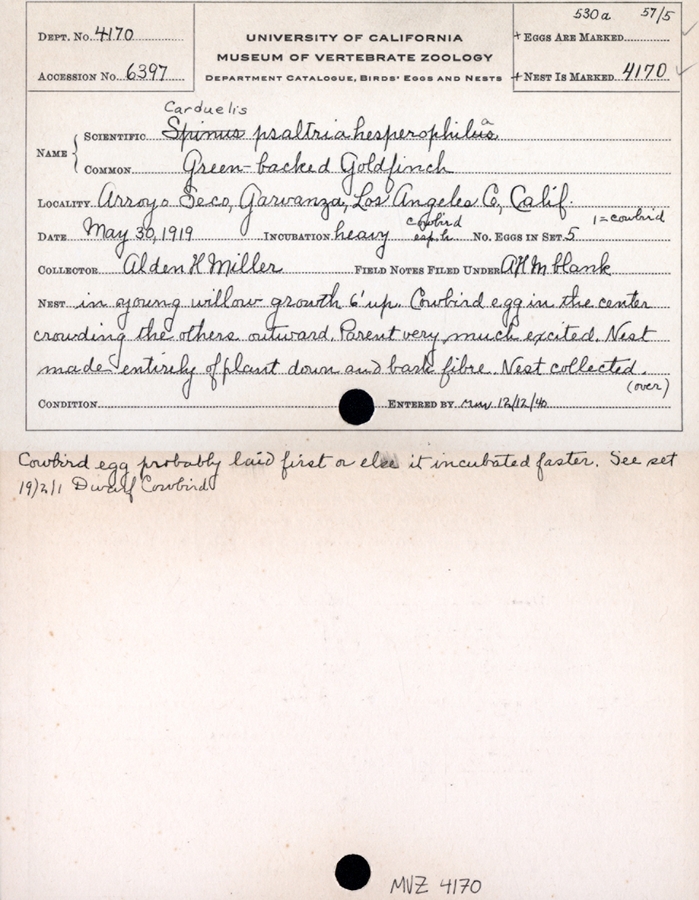 530a 57/5
DEPT. No. 4170
UNIVERSITY OF CALIFORNIA
+ EGGS ARE MARKED
MUSEUM OF VERTEBRATE ZOOLOGY
ACCESSION No. 6397
DEPARTMENT CATALOGUE, BIRDS' EGGS AND NESTS
+ NEST IS MARKED 4170
Carduelis
NAME { SCIENTIFIC Spinus psaltria hesperophilus a
COMMON Green-backed Goldfinch
LOCALITY Arroyo Seco, Garvanza, Los Angeles Co, Calif.
DATE May 30, 1919 INCUBATION heavy cowbird esp.ly No. EGGS IN SET 5 1=cowbird
COLLECTOR Alden H Miller FIELD NOTES FILED UNDER AHM blank
NEST in young willow growth 6' up. Cowbird egg in the center
crowding the others outward. Parent very much excited. Nest
made entirely of plant down and bark fibre. Nest collected.
(over)
CONDITION ENTERED BY 12/12/40
Cowbird egg probably laid first or else it incubated faster. See set
19/2/1 Dwarf Cowbird
MVZ 4170